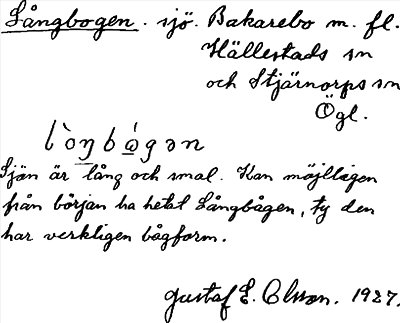 Långbogen. sjö. Bakarebo m. fl.
Hällestads sn
och Stjärnorps sn
Ögl.
lòŋbágən
Sjön är lång och smal. Kan möjligen
från början ha hetat Långbågen, ty den
har verkligen bågform.
Gustaf E. Olsson. 1927.